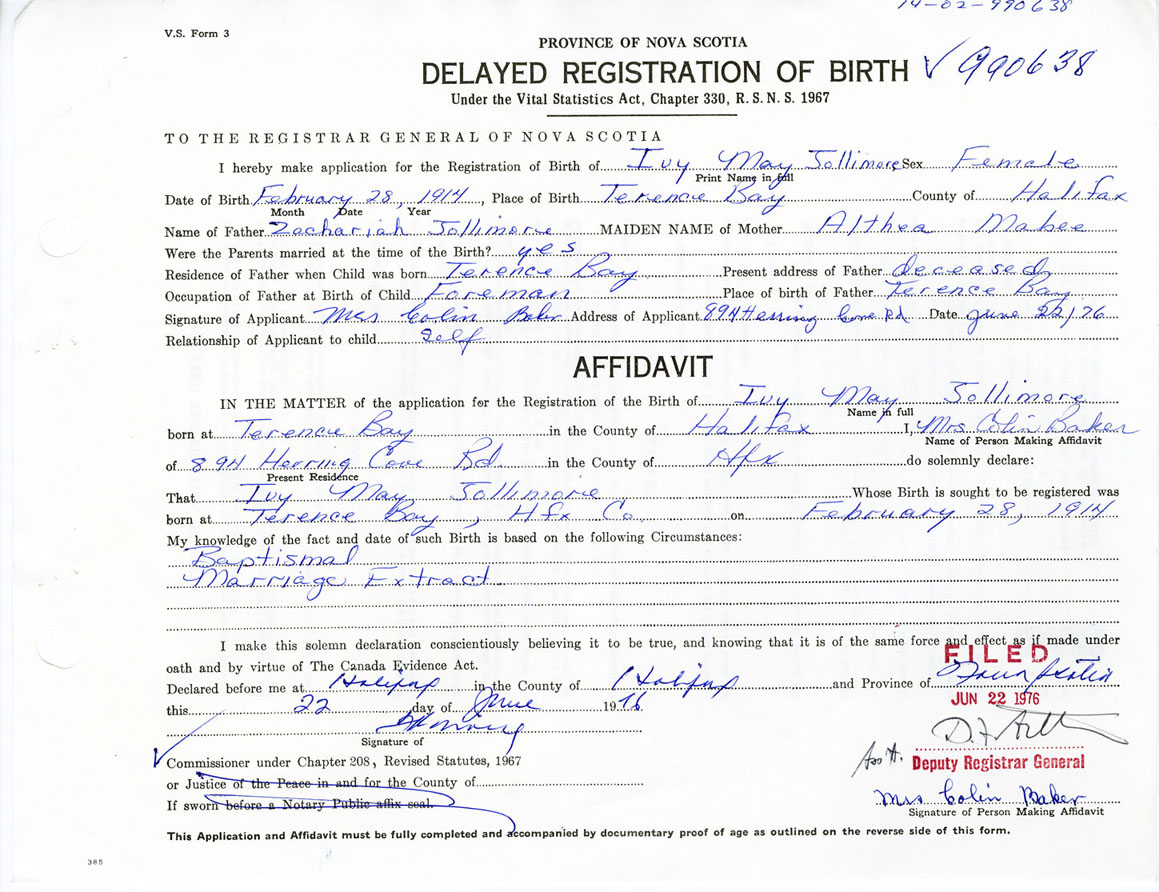 14-02-990638
V.S. Form 3
PROVINCE OF NOVA SCOTIA
DELAYED REGISTRATION OF BIRTH ✓ 990638
Under the Vital Statistics Act, Chapter 330, R.S.N.S. 1967
TO THE REGISTRAR GENERAL OF NOVA SCOTIA
I hereby make application for the Registration of Birth of Ivy May Jollimore Sex Female
Print Name in full
Date of Birth February 28, 1914, Place of Birth Terence Bay County of Halifax
Month Date Year
Name of Father Zachariah Jollimore MAIDEN NAME of Mother Althea Mabee
Were the Parents married at the time of the Birth? yes
Residence of Father when Child was born Terence Bay Present address of Father deceased
Occupation of Father at Birth of Child Foreman Place of birth of Father Terence Bay
Signature of Applicant Mrs Colin Baker Address of Applicant 894 Herring Cove Rd Date June 22/76
Relationship of Applicant to child Self
AFFIDAVIT
IN THE MATTER of the application for the Registration of the Birth of Ivy May Jollimore
Name in full
born at Terence Bay in the County of Halifax I, Mrs Colin Baker
Name of Person Making Affidavit
of 894 Herring Cove Rd in the County of Hfx do solemnly declare:
Present Residence
That Ivy May Jollimore Whose Birth is sought to be registered was
born at Terence Bay, Hfx Co. on February 28, 1914
My knowledge of the fact and date of such Birth is based on the following Circumstances:
Baptismal
Marriage Extract.
I make this solemn declaration conscientiously believing it to be true, and knowing that it is of the same force and effect as if made under
oath and by virtue of The Canada Evidence Act.
FILED
Declared before me at Halifax in the County of Halifax and Province of Nova Scotia
this 22 day of June 1976
JUN 22 1976
Signature of
Commissioner under Chapter 208, Revised Statutes, 1967
Deputy Registrar General
or Justice of the Peace in and for the County of
If sworn before a Notary Public affix seal.
Mrs Colin Baker
Signature of Person Making Affidavit
This Application and Affidavit must be fully completed and accompanied by documentary proof of age as outlined on the reverse side of this form.
385